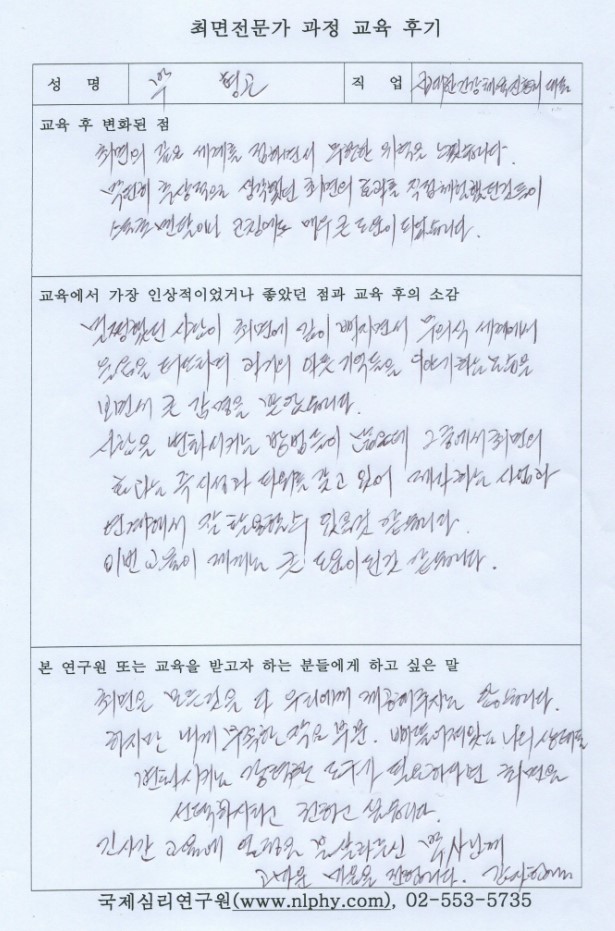 최면전문가 과정 교육 후기
성 명 형근 직 업 대표
교육 후 변화된 점
최면의 깊은 세계를 접하면서 무한한 위력을 느꼈습니다.
막연히 추상적으로 생각했던 최면의 효과를 직접 체험했던것들이
매우 큰 도움이 되었습니다.
교육에서 가장 인상적이었거나 좋았던 점과 교육 후의 소감
멀쩡했던 사람이 최면에 깊이 빠지면서 무의식 세계에서
과거의 아픈 기억들을 이야기하는 모습을
보면서 큰 감명을 받았습니다.
사람을 변화시키는 방법들이 많은데 그중에서 최면의
효과는 즉시성과 파워를 갖고 있어 제가 하는 사업과
연계해서 잘 활용할수 있을것 같습니다.
이번 교육이 제게는 큰 도움이 된것 같습니다.
본 연구원 또는 교육을 받고자 하는 분들에게 하고 싶은 말
최면은 모든것을 다 우리에게 제공해주지는 않습니다.
하지만 내게 부족한 작은 부분, 삐뚤어져있는 나의 상태를
변화시키는 강력한 도구가 필요하다면 최면을
선택하시라고 권하고 싶습니다.
긴시간 교육에 열정을 박사님께
고마운 마음을 전합니다. 감사합니다
국제심리연구원(www.nlphy.com), 02-553-5735